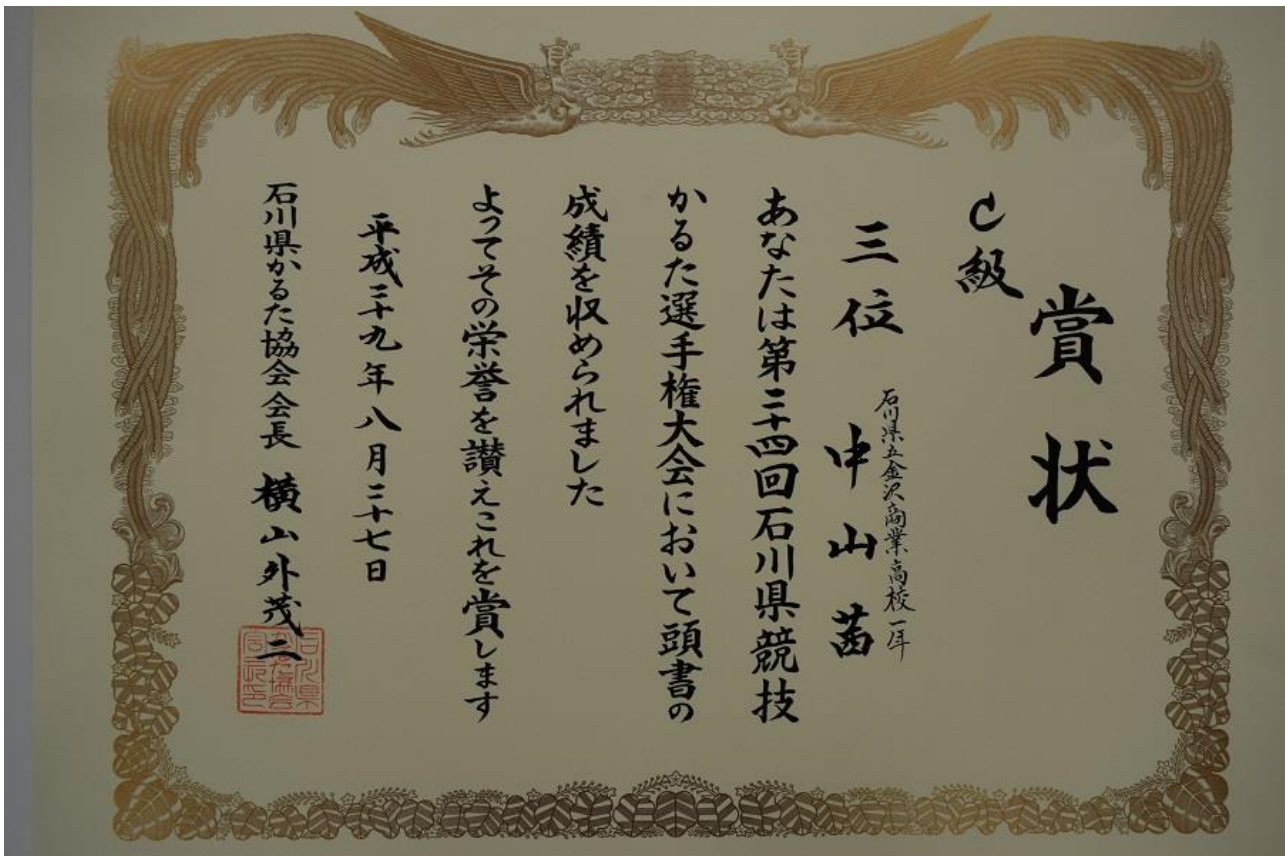 賞状
C級
三位 石川県立金沢商業高校一年 中山茜
あなたは第二十四回石川県競技
かるた選手権大会において頭書の
成績を収められました
よってその栄誉を讃えこれを賞します
平成二十九年八月二十七日
石川県かるた協会会長 横山外茂二